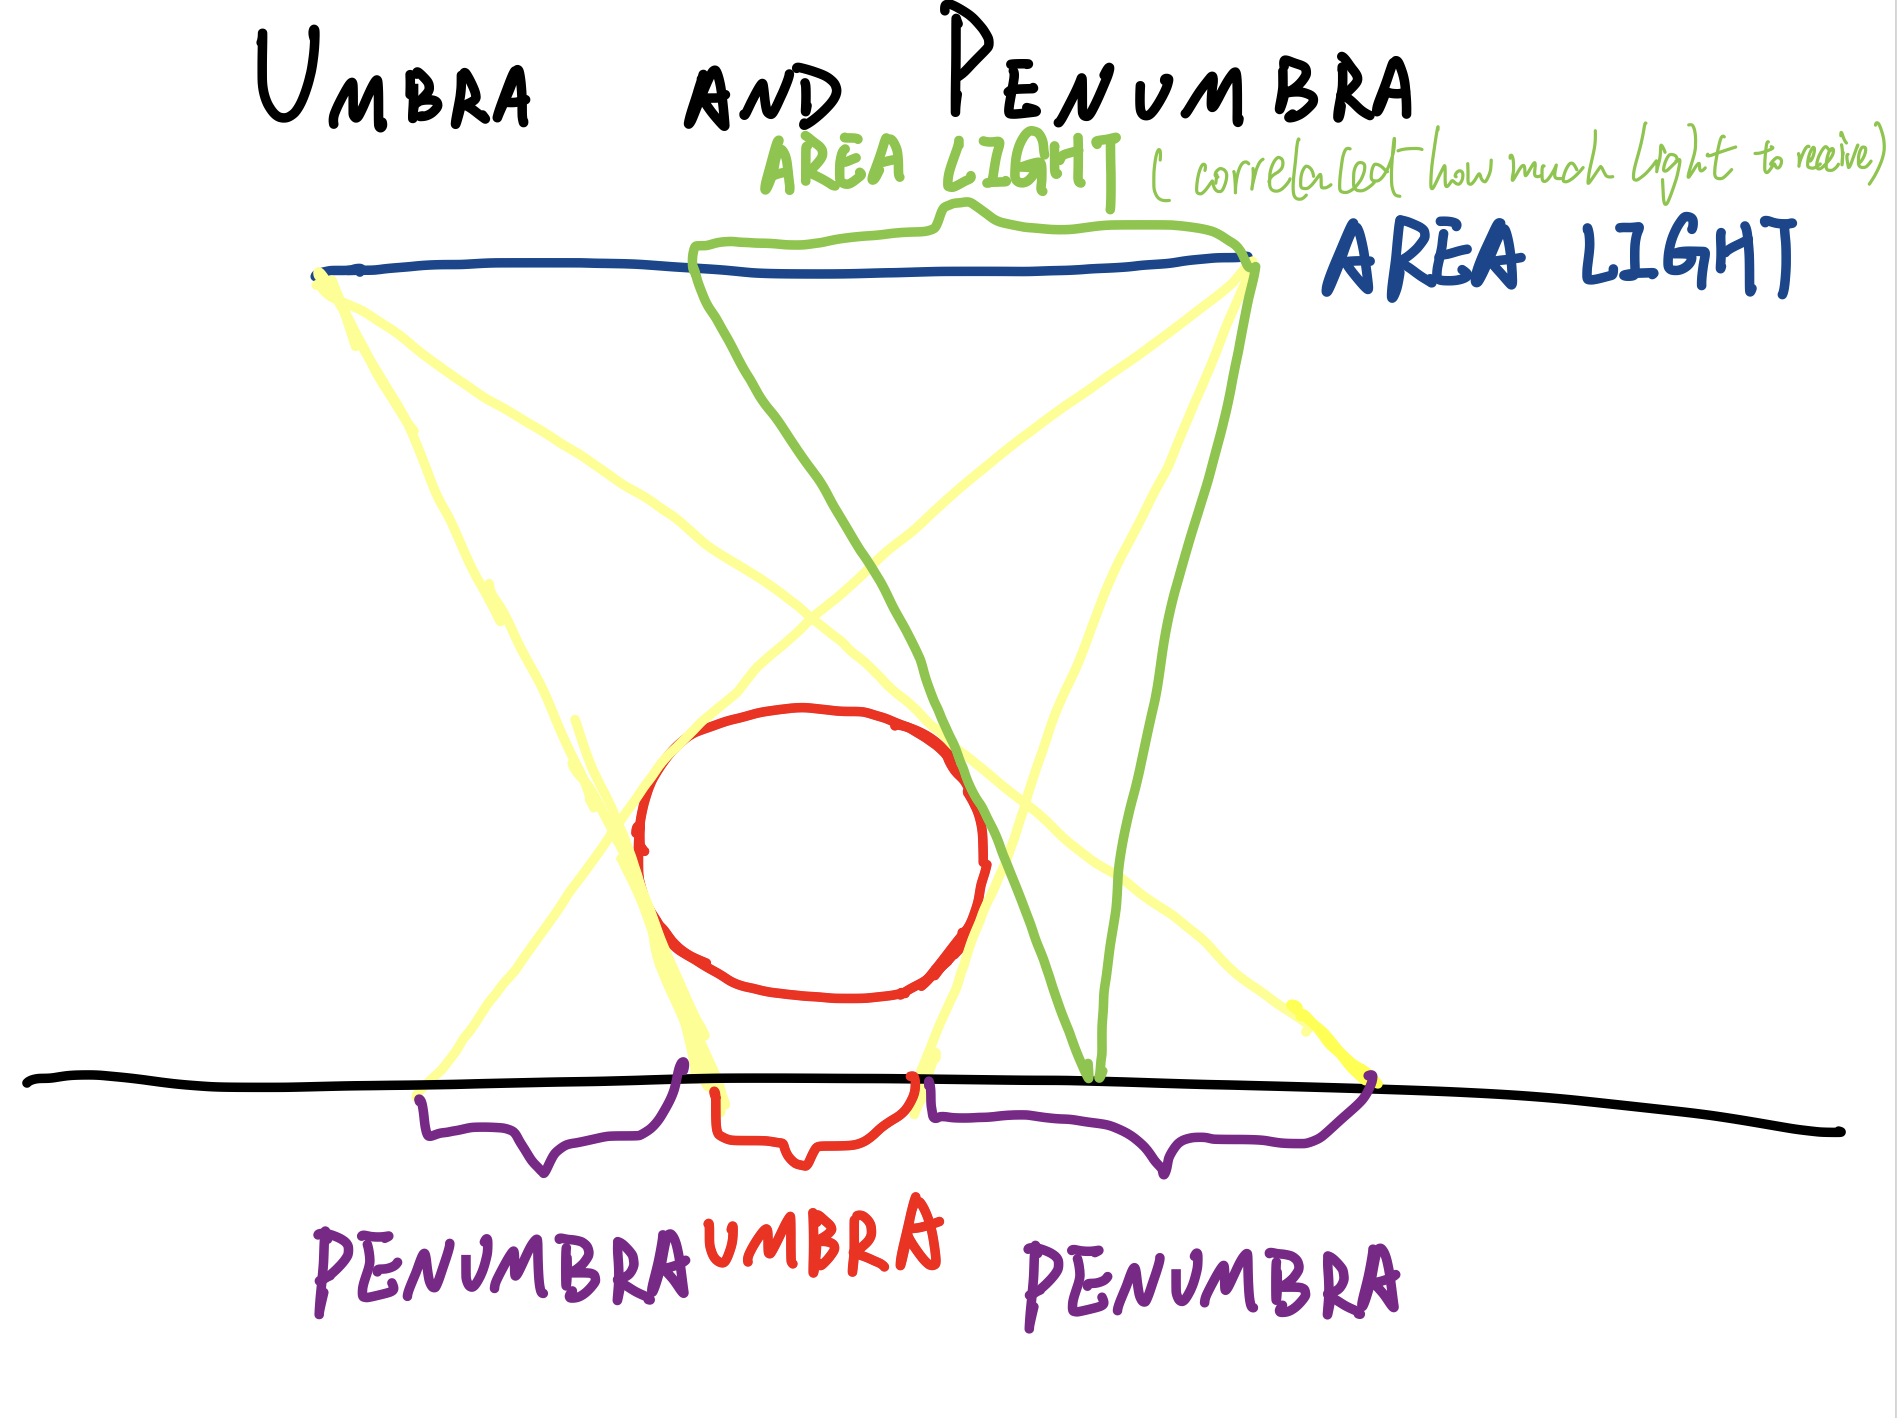 UMBRA AND PENUMBRA
AREA LIGHT ( correlated how much light to receive)
AREA LIGHT
PENUMBRA UMBRA PENUMBRA